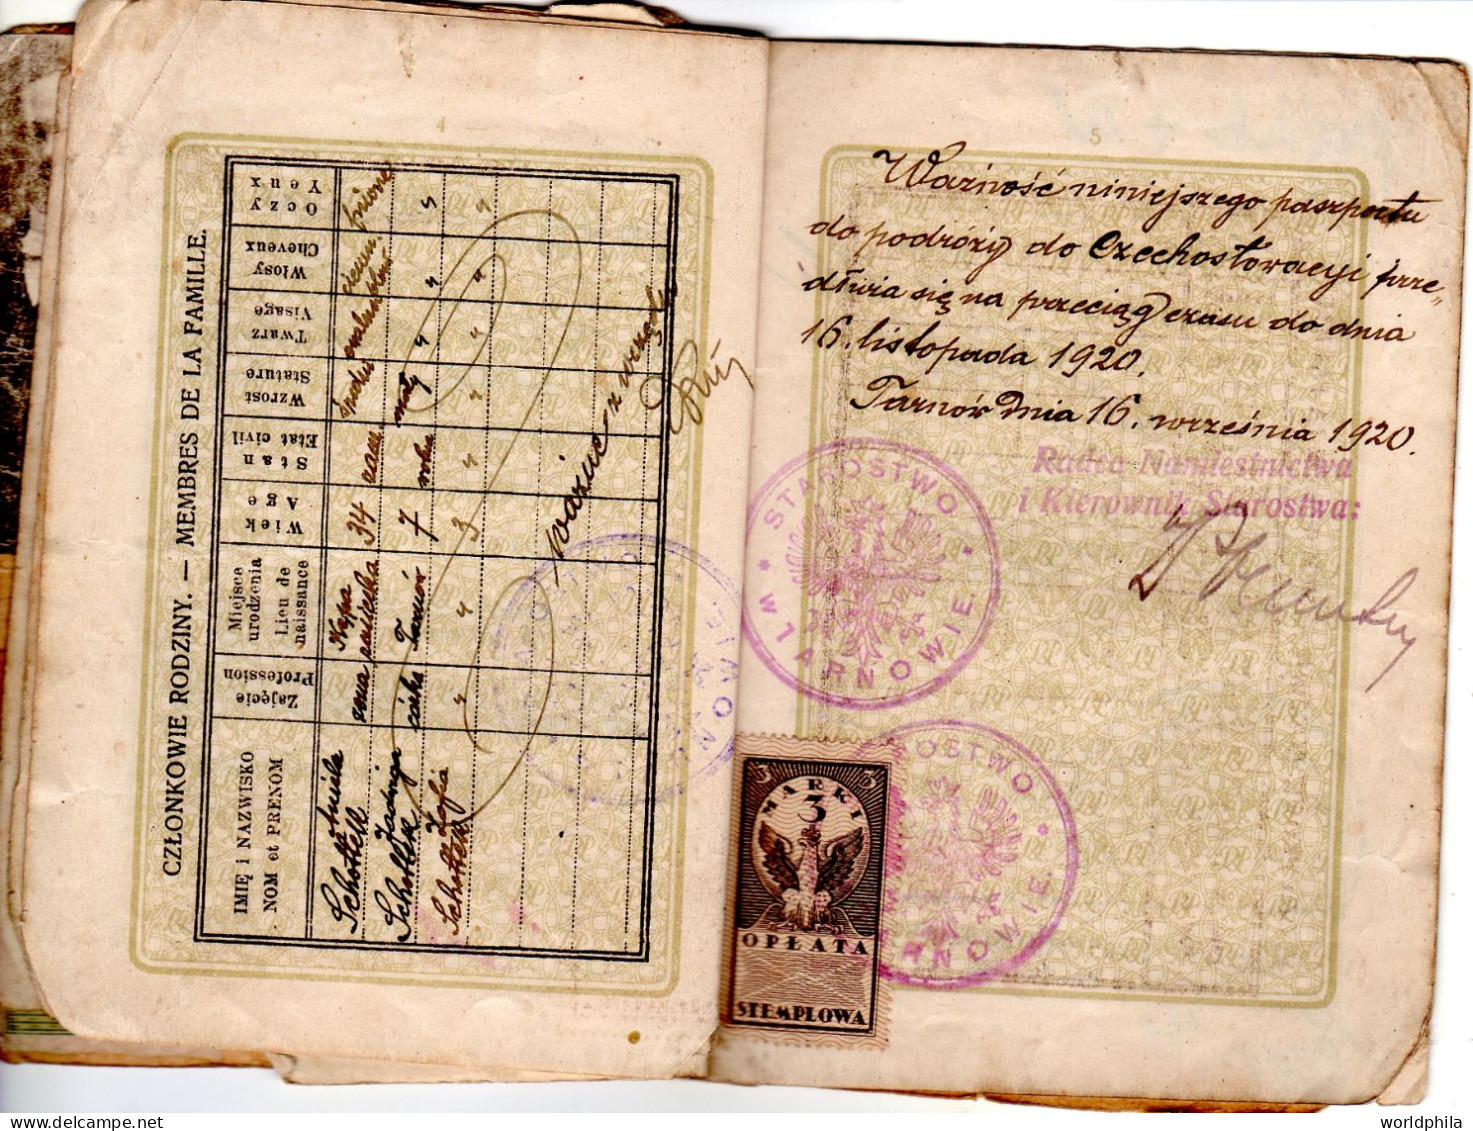 4
CZŁONKOWIE RODZINY. — MEMBRES DE LA FAMILLE.
IMIĘ i NAZWISKO
NOM et PRENOM
Zajęcie
Profession
Miejsce
urodzenia
Lieu de
naissance
Wiek
Age
Stan
Etat civil
Wzrost
Stature
Twarz
Visage
Włosy
Cheveux
Oczy
Yeux
Schottek
żona
34
Schottek Jadwiga
córka
Tarnów
7
wolna
mały
" "
Schottek Zofia
"
"
3
" " " " "
5
Ważność niniejszego paszportu
do podróży do Czechosłowacyi prze-
dłuża się na przeciąg czasu do dnia
16. listopada 1920.
Tarnów dnia 16. września 1920.
Radca Namiestnictwa
i Kierownik Starostwa:
* STAROSTWO *
W TARNOWIE.
STAROSTWO *
W TARNOWIE.
3 3
MARKI
3
OPŁATA
STEMPLOWA
worldphila